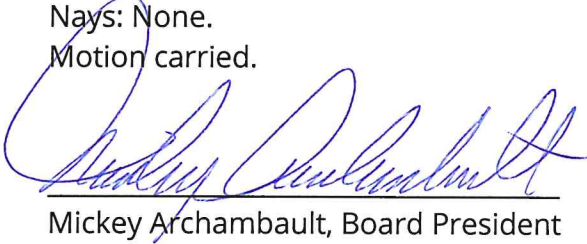 Nays: None.
Motion carried.
Mickey Archambault
Mickey Archambault, Board President